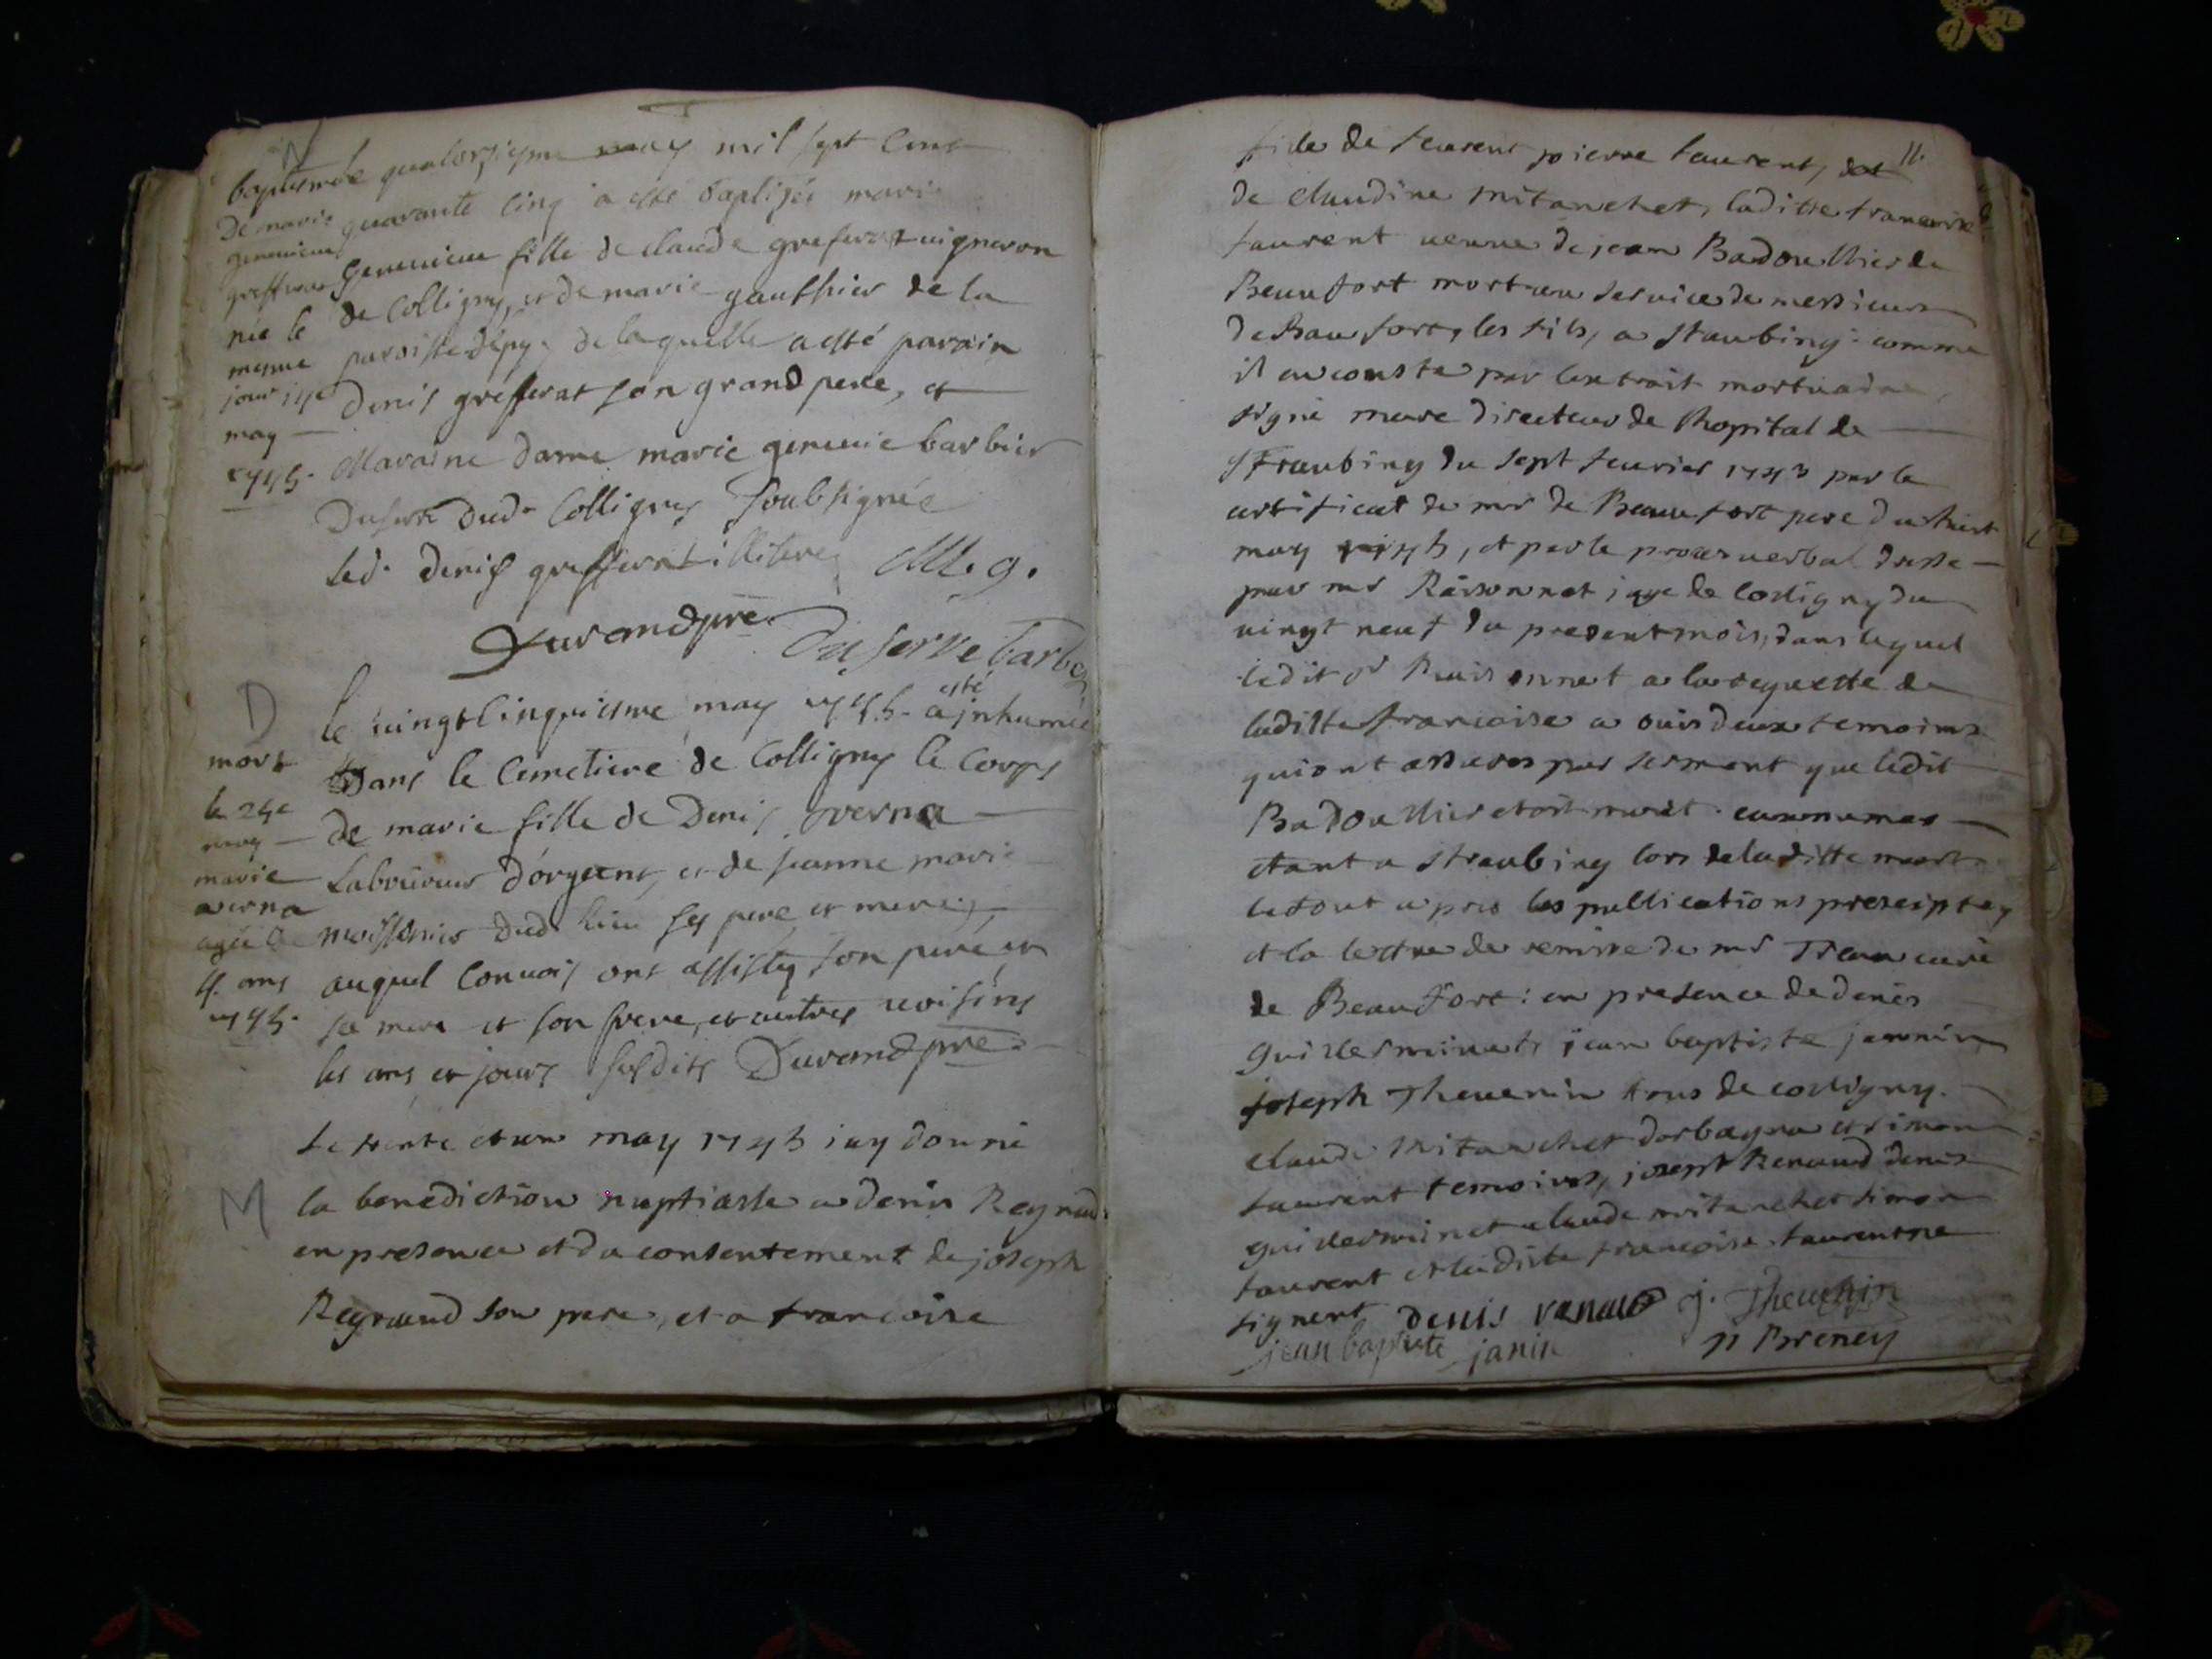 N
baptesme
De marie
genevieve
grefferat
née le
mesme
jour 14e
may
1745.
le quatorzieme may mil sept cent
quarante cinq a esté baptizée marie
Genevieve fille de claude grefferat vigneron
de Colligny, et de marie gauthier de la
paroisse d'épy, de laquelle a esté parain
Denis grefferat son grand pere, et
Maraine dame marie genevie barbier
Duserre dud. Colligny soubsignée
led. Denis grefferat illiteré M. g.
Durand pre. Duserre barbier
D
mort
le 24e
may
marie
averna
agée de
4. ans
1745.
le vingtcinquiesme may 1745. a esté jnhumée
Dans le Cemetiere de Colligny le Corps
de marie fille de Denis averna
Laboureur d'orgeant, et de jeanne marie
moissonier dud. lieu ses pere et mere,
auquel Convois ont assisté son pere et
sa mere et son frere, et autres voisins
les ans et jours susdits Durand pre.
M
Le trente et un may 1745 j'ay donné
la benediction nuptialle a denis Regnaud
en presence et du consentement de joseph
Regnaud son pere, et a francoise
11.
fille de feurent pierre laurent, et
de claudine mitanchet, laditte francoise
laurent veuve de jean Badoullier de
Beaufort mort au service de messieurs
de Baufort, les fils, a Staubing: comme
il en conste par lextrait mortuaire,
signé meure directeur de lhopital de
STraubing du sept fevrier 1743 par le
certificat de mr de Beaufort pere du huit
may 1745, et par le procez verbal dressé
par mr Raisonnet juge de colligny du
vingt neuf du present mois, dans lequel
ledit sr Raisonnet a la requette de
laditte francoise a ouis deux temoins
qui ont assurés par serment que ledit
Badoullier etoit mort eux memes
etant a straubing lors de laditte mort
le tout apres les publications prescriptes
et la lettre de remise de mr Treau curé
de Beaufort: en presence de denis
Guillerminet, jean baptiste jannin
joseph Thevenin tous de colligny.
claude mitanchet dorbagna et simon
laurent temoins, joseph Renaud denis
guillerminet claude mitanchet simon
laurent et laditte francoise laurent ne
signent denis renaud j. Thevenin
jean baptiste janin p Breney